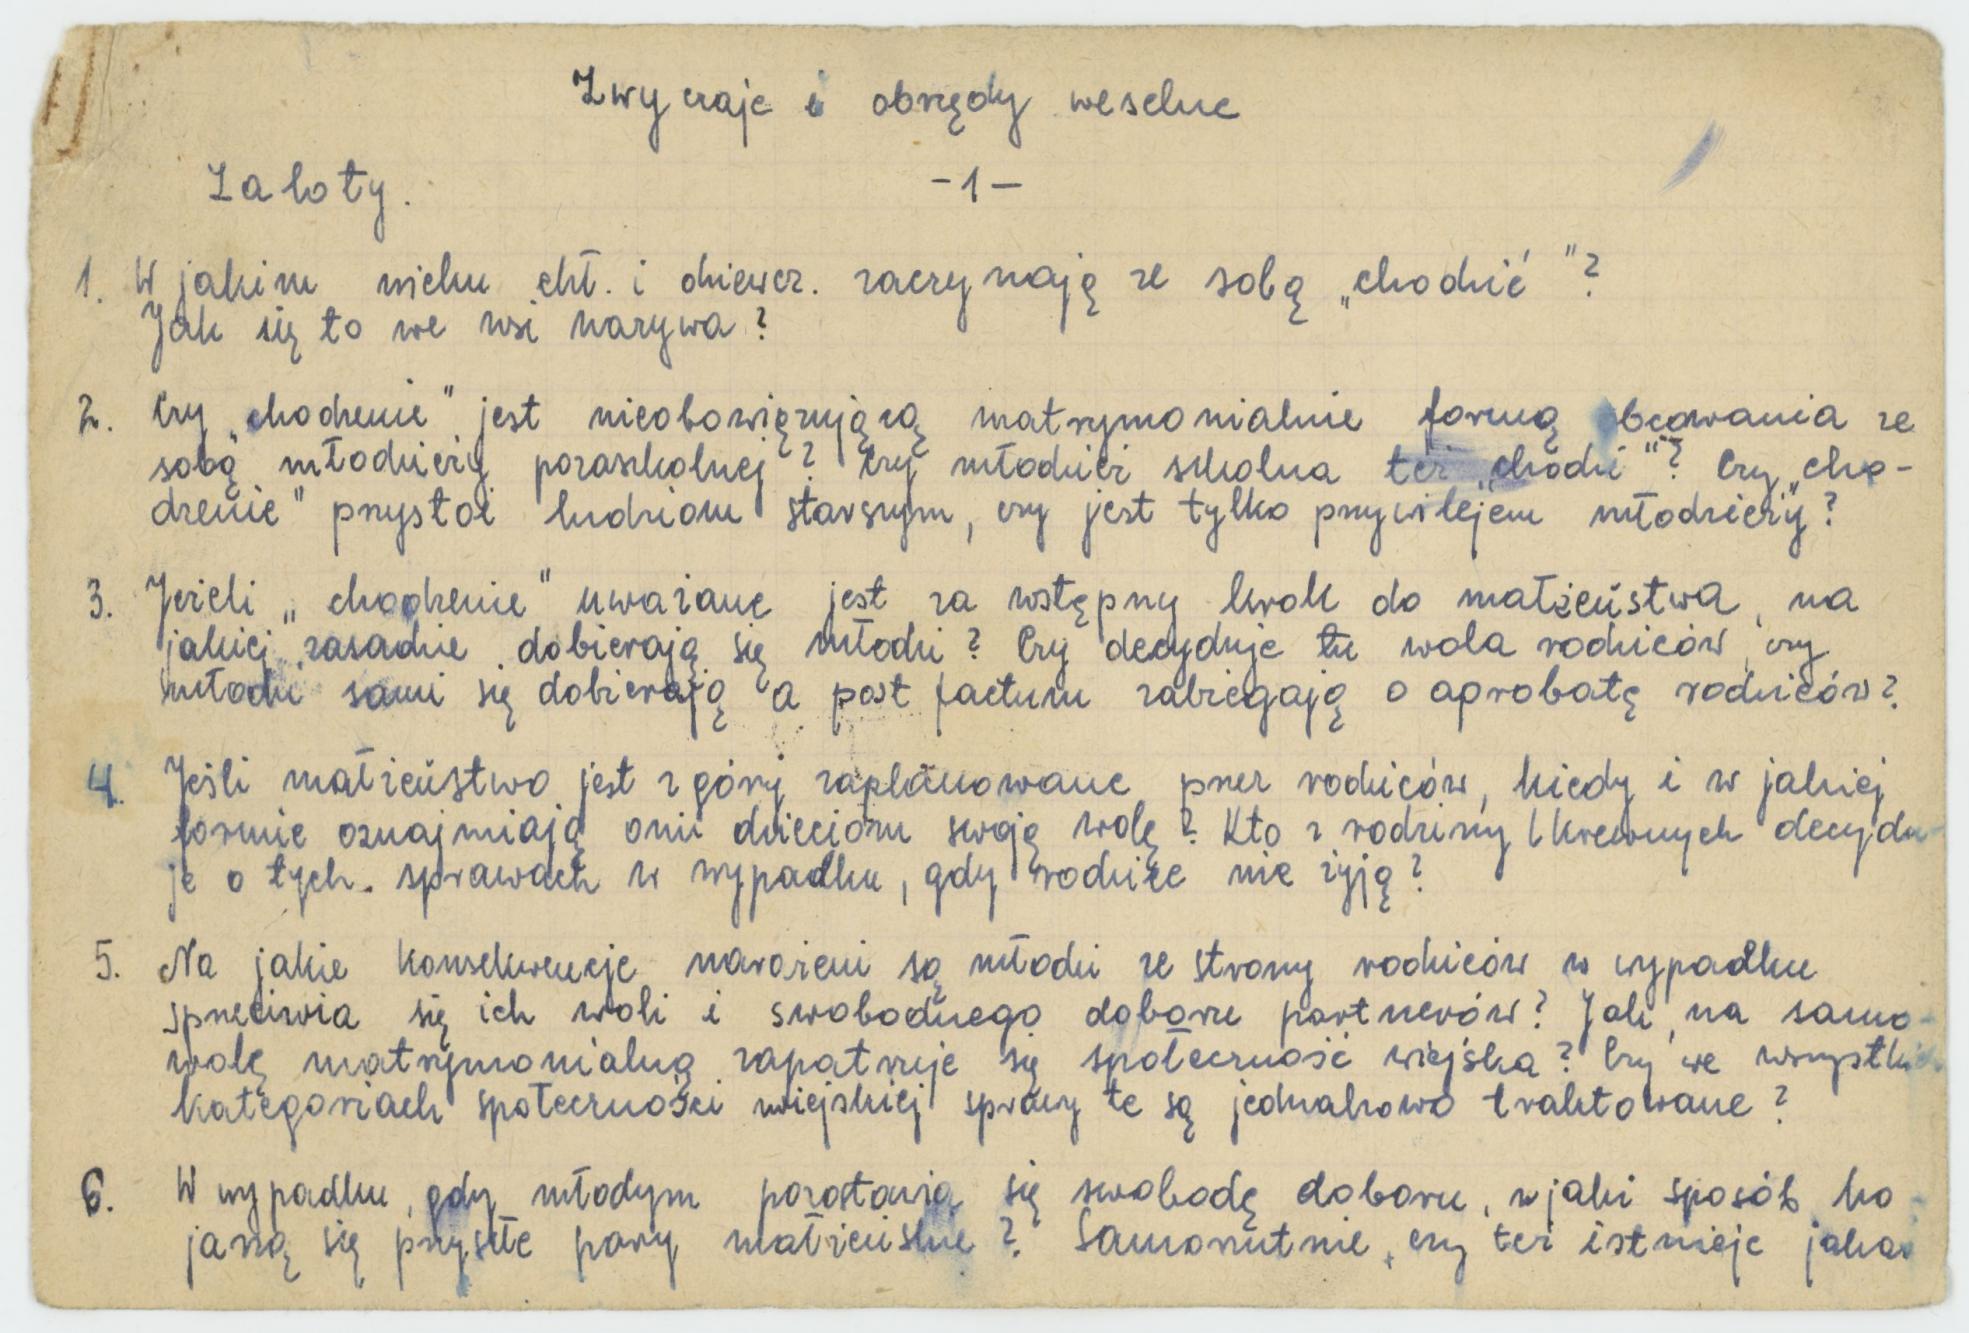 Zwyczaje i obrzędy weselne
Zaloty.
-1-
1. W jakim wieku chł. i dziewcz. zaczynają ze sobą „chodzić"?
Jak się to we wsi nazywa?
2. Czy „chodzenie" jest nieobowiązującą matrymonialnie formą obcowania ze
sobą młodzieży pozaszkolnej? Czy młodzież szkolna też „chodzi"? Czy „cho-
dzenie" przystoi ludziom starszym, czy jest tylko przywilejem młodzieży?
3. Jeżeli „chodzenie" uważane jest za wstępny krok do małżeństwa, na
jakiej zasadzie dobierają się młodzi? Czy decyduje tu wola rodziców, czy
młodzi sami się dobierają a post factum zabiegają o aprobatę rodziców?
4. Jeśli małżeństwo jest z góry zaplanowane przez rodziców, kiedy i w jakiej
formie oznajmiają oni dzieciom swoją wolę? Kto z rodziny i krewnych decydu-
je o tych sprawach w wypadku, gdy rodzice nie żyją?
5. Na jakie konsekwencje narażeni są młodzi ze strony rodziców w wypadku
sprzeciwia się ich woli i swobodnego doboru partnerów? Jak na samo-
wolę matrymonialną zapatruje się społeczność wiejska? Czy we wszystkich
kategoriach społeczności wiejskiej sprawy te są jednakowo traktowane?
6. W wypadku, gdy młodym pozostawia się swobodę doboru, w jaki sposób ko-
jarzą się przyszłe pary małżeńskie? Samorzutnie, czy też istnieje jakaś